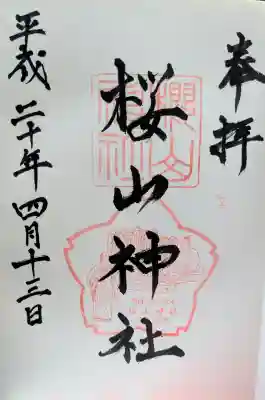 奉拝
桜山神社
平成二十年四月十三日